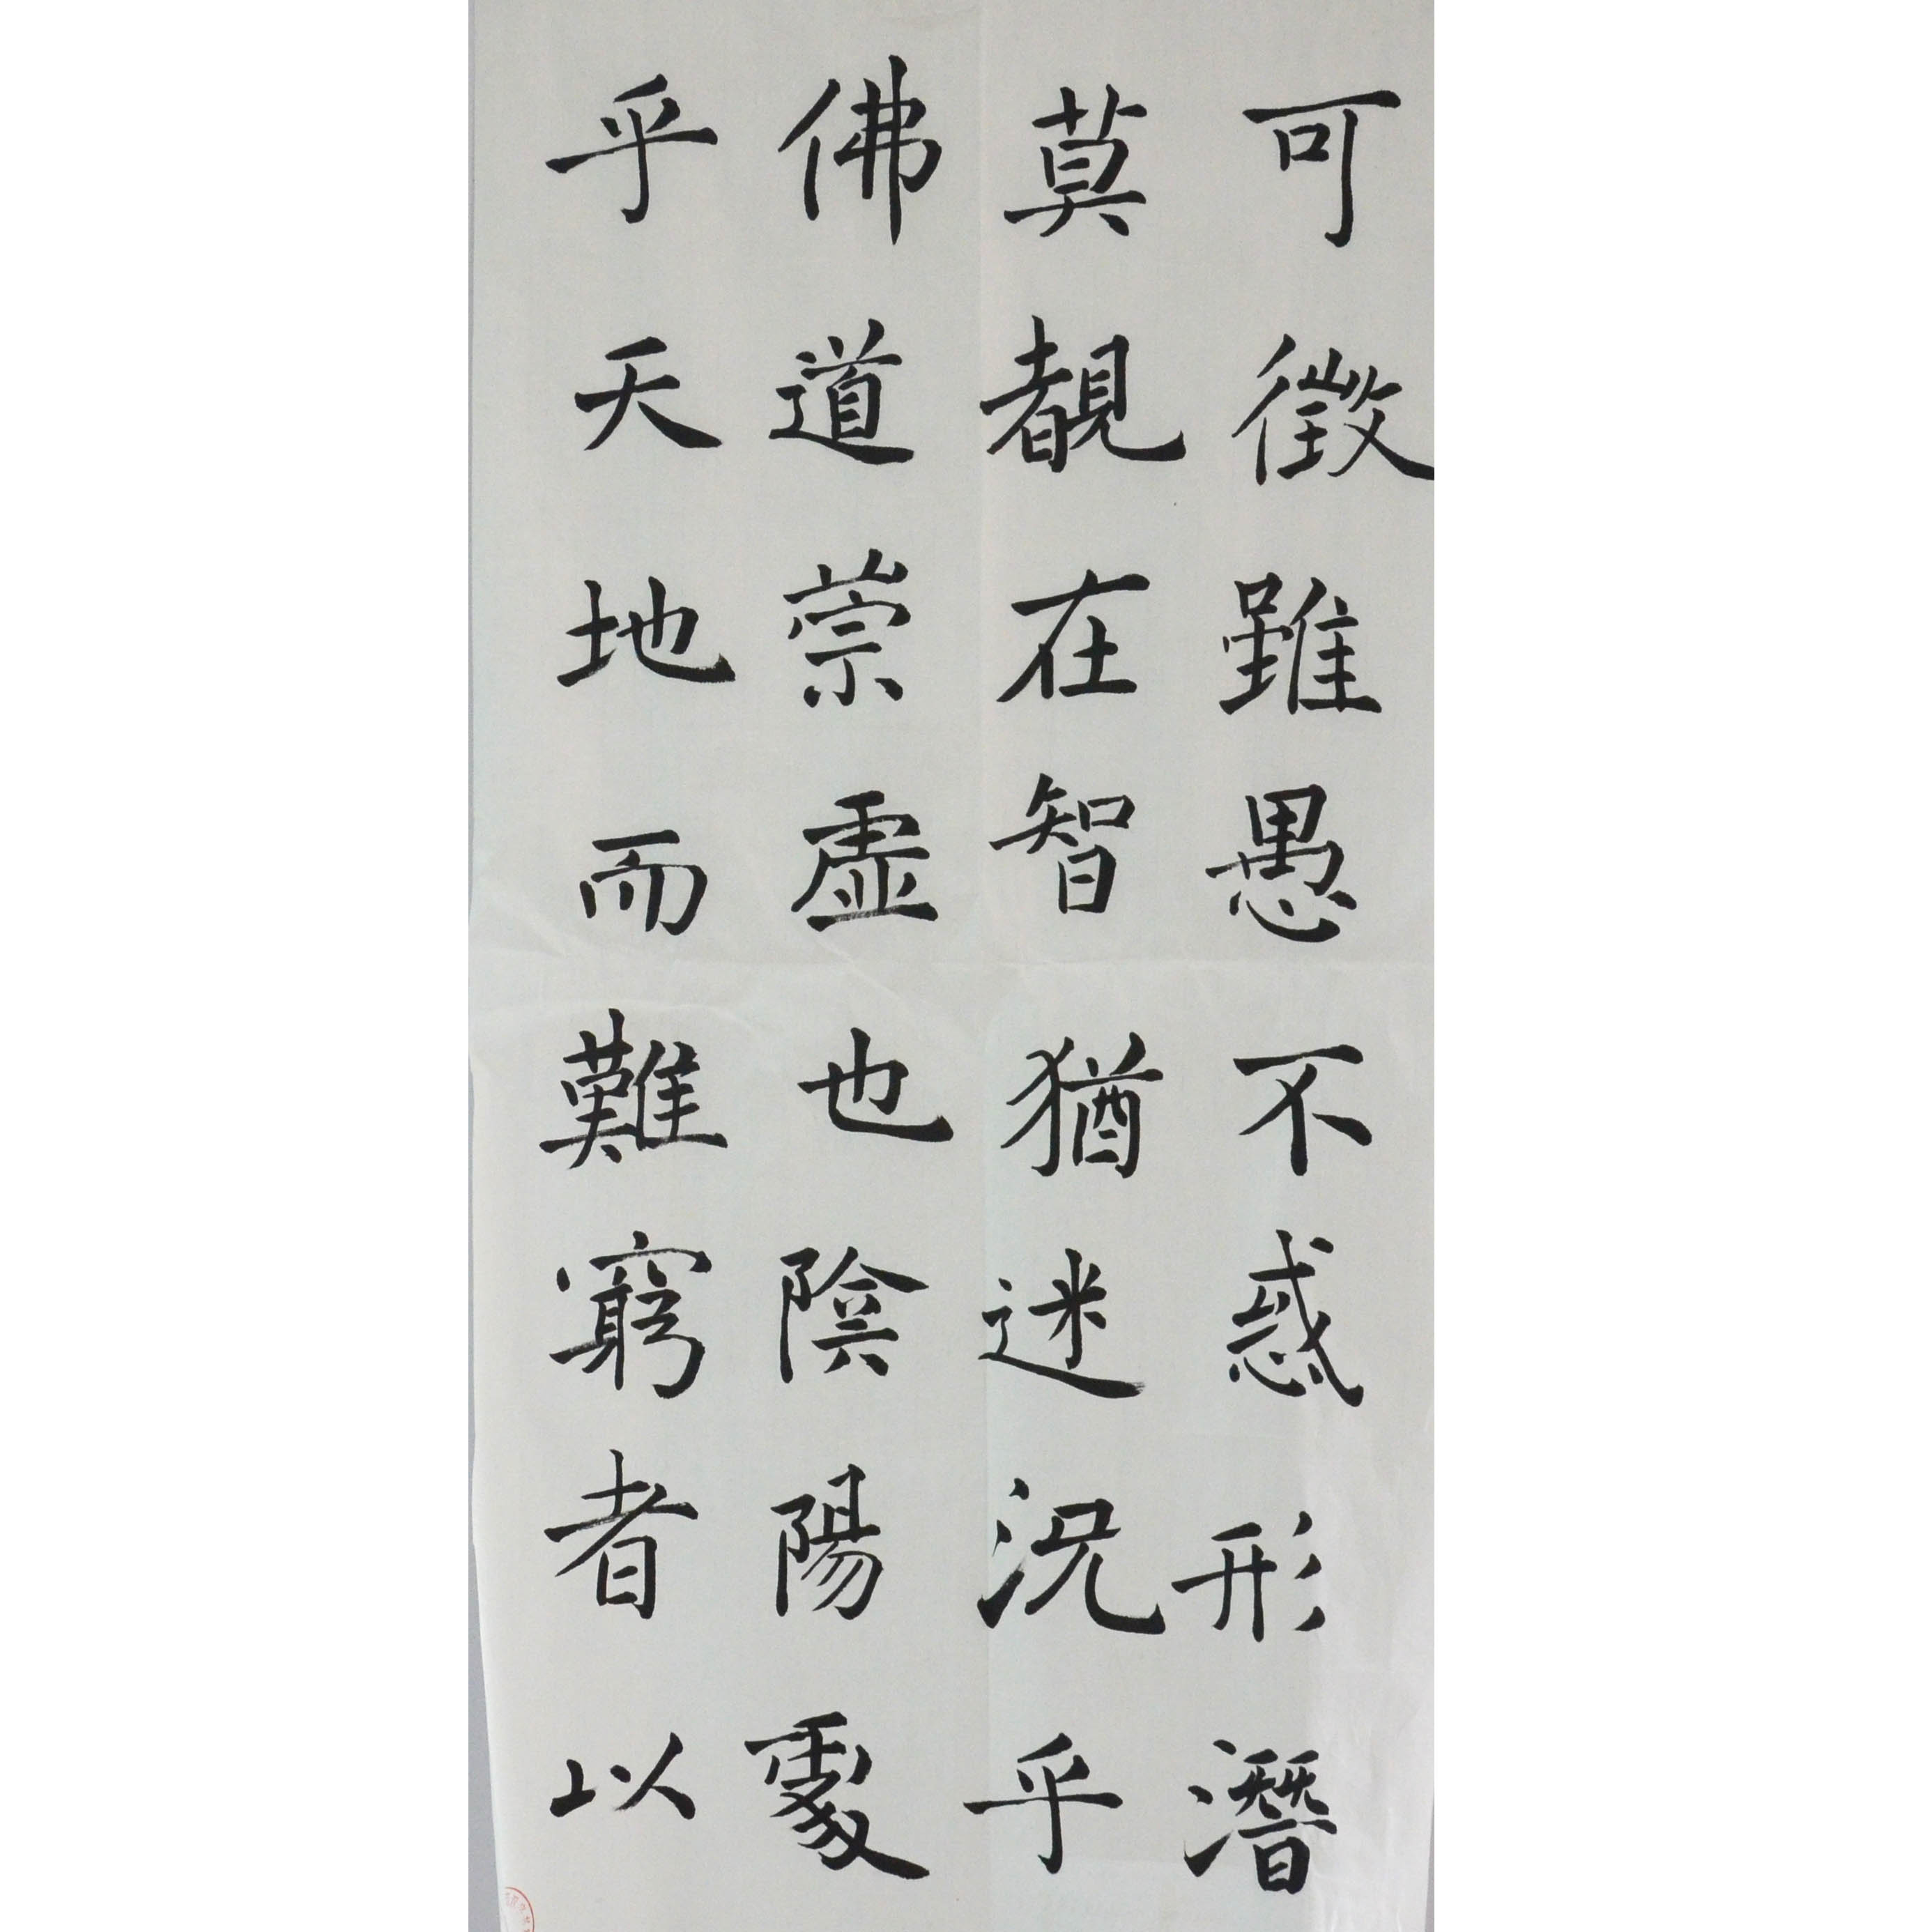 可徵雖愚不惑形潛
莫覩在智猶迷況乎
佛道崇虛也陰陽處
乎天地而難窮者以